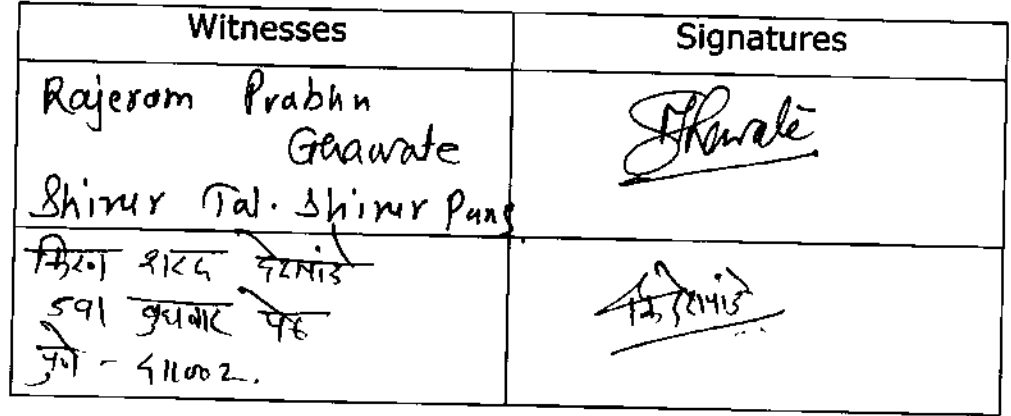 Witnesses Signatures
Rajeram Prabhu
Ghawate
Shirur Tal. Shirur Pune
Ghawate
किरण शरद देशपांडे
591 बुधवार पेठ
पुणे - 411002.